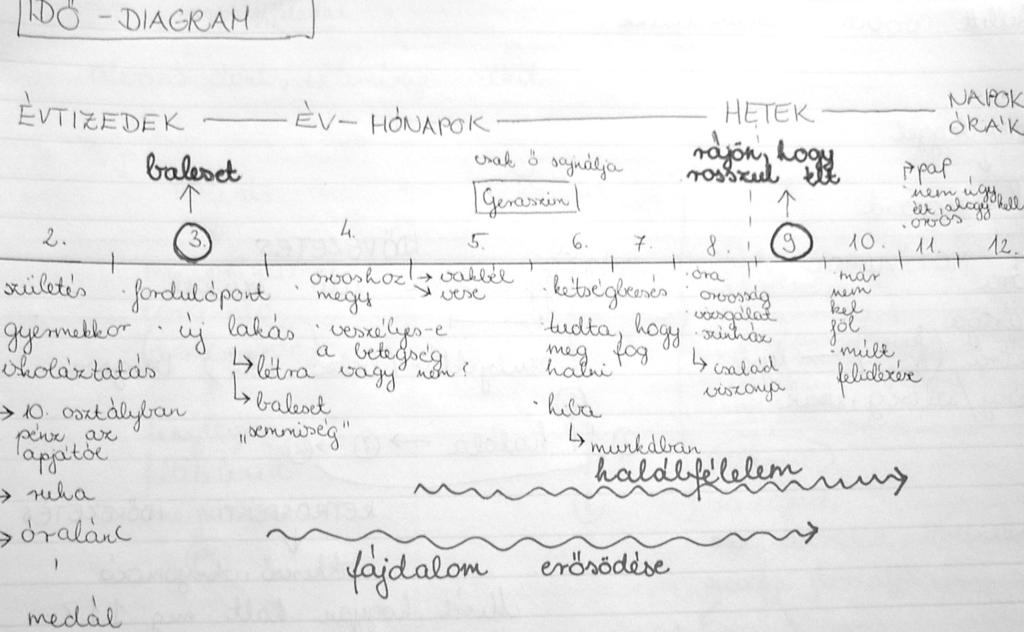 IDŐ - DIAGRAM
ÉVTIZEDEK — ÉV - HÓNAPOK — HETEK — NAPOK
ÓRÁK
baleset
csak ő sajnálja
Geraszin
rájön, hogy
rosszul élt
→ pap
· nem úgy
élt, ahogy kell
· orvos
2. 3. 4. 5. 6. 7. 8. 9 10. 11. 12.
születés
gyermekkor
→ 10. osztályban
pénz az
apjától
→ ruha
→ óralánc
medál
· fordulópont
· új lakás
↳ létra
↳ baleset
„semmiség"
· orvoshoz
megy
· veszélyes-e
a betegség
vagy nem?
→ vakbél
→ vese
· kétségbeesés
· tudta hogy
meg fog
halni
· hiba
↳ munkában
· óra
orvosság
vizsgálat
· színház
↳ család
viszonya
· már
nem
kel
föl
· múlt
felidézése
halálfélelem
fájdalom erősödése